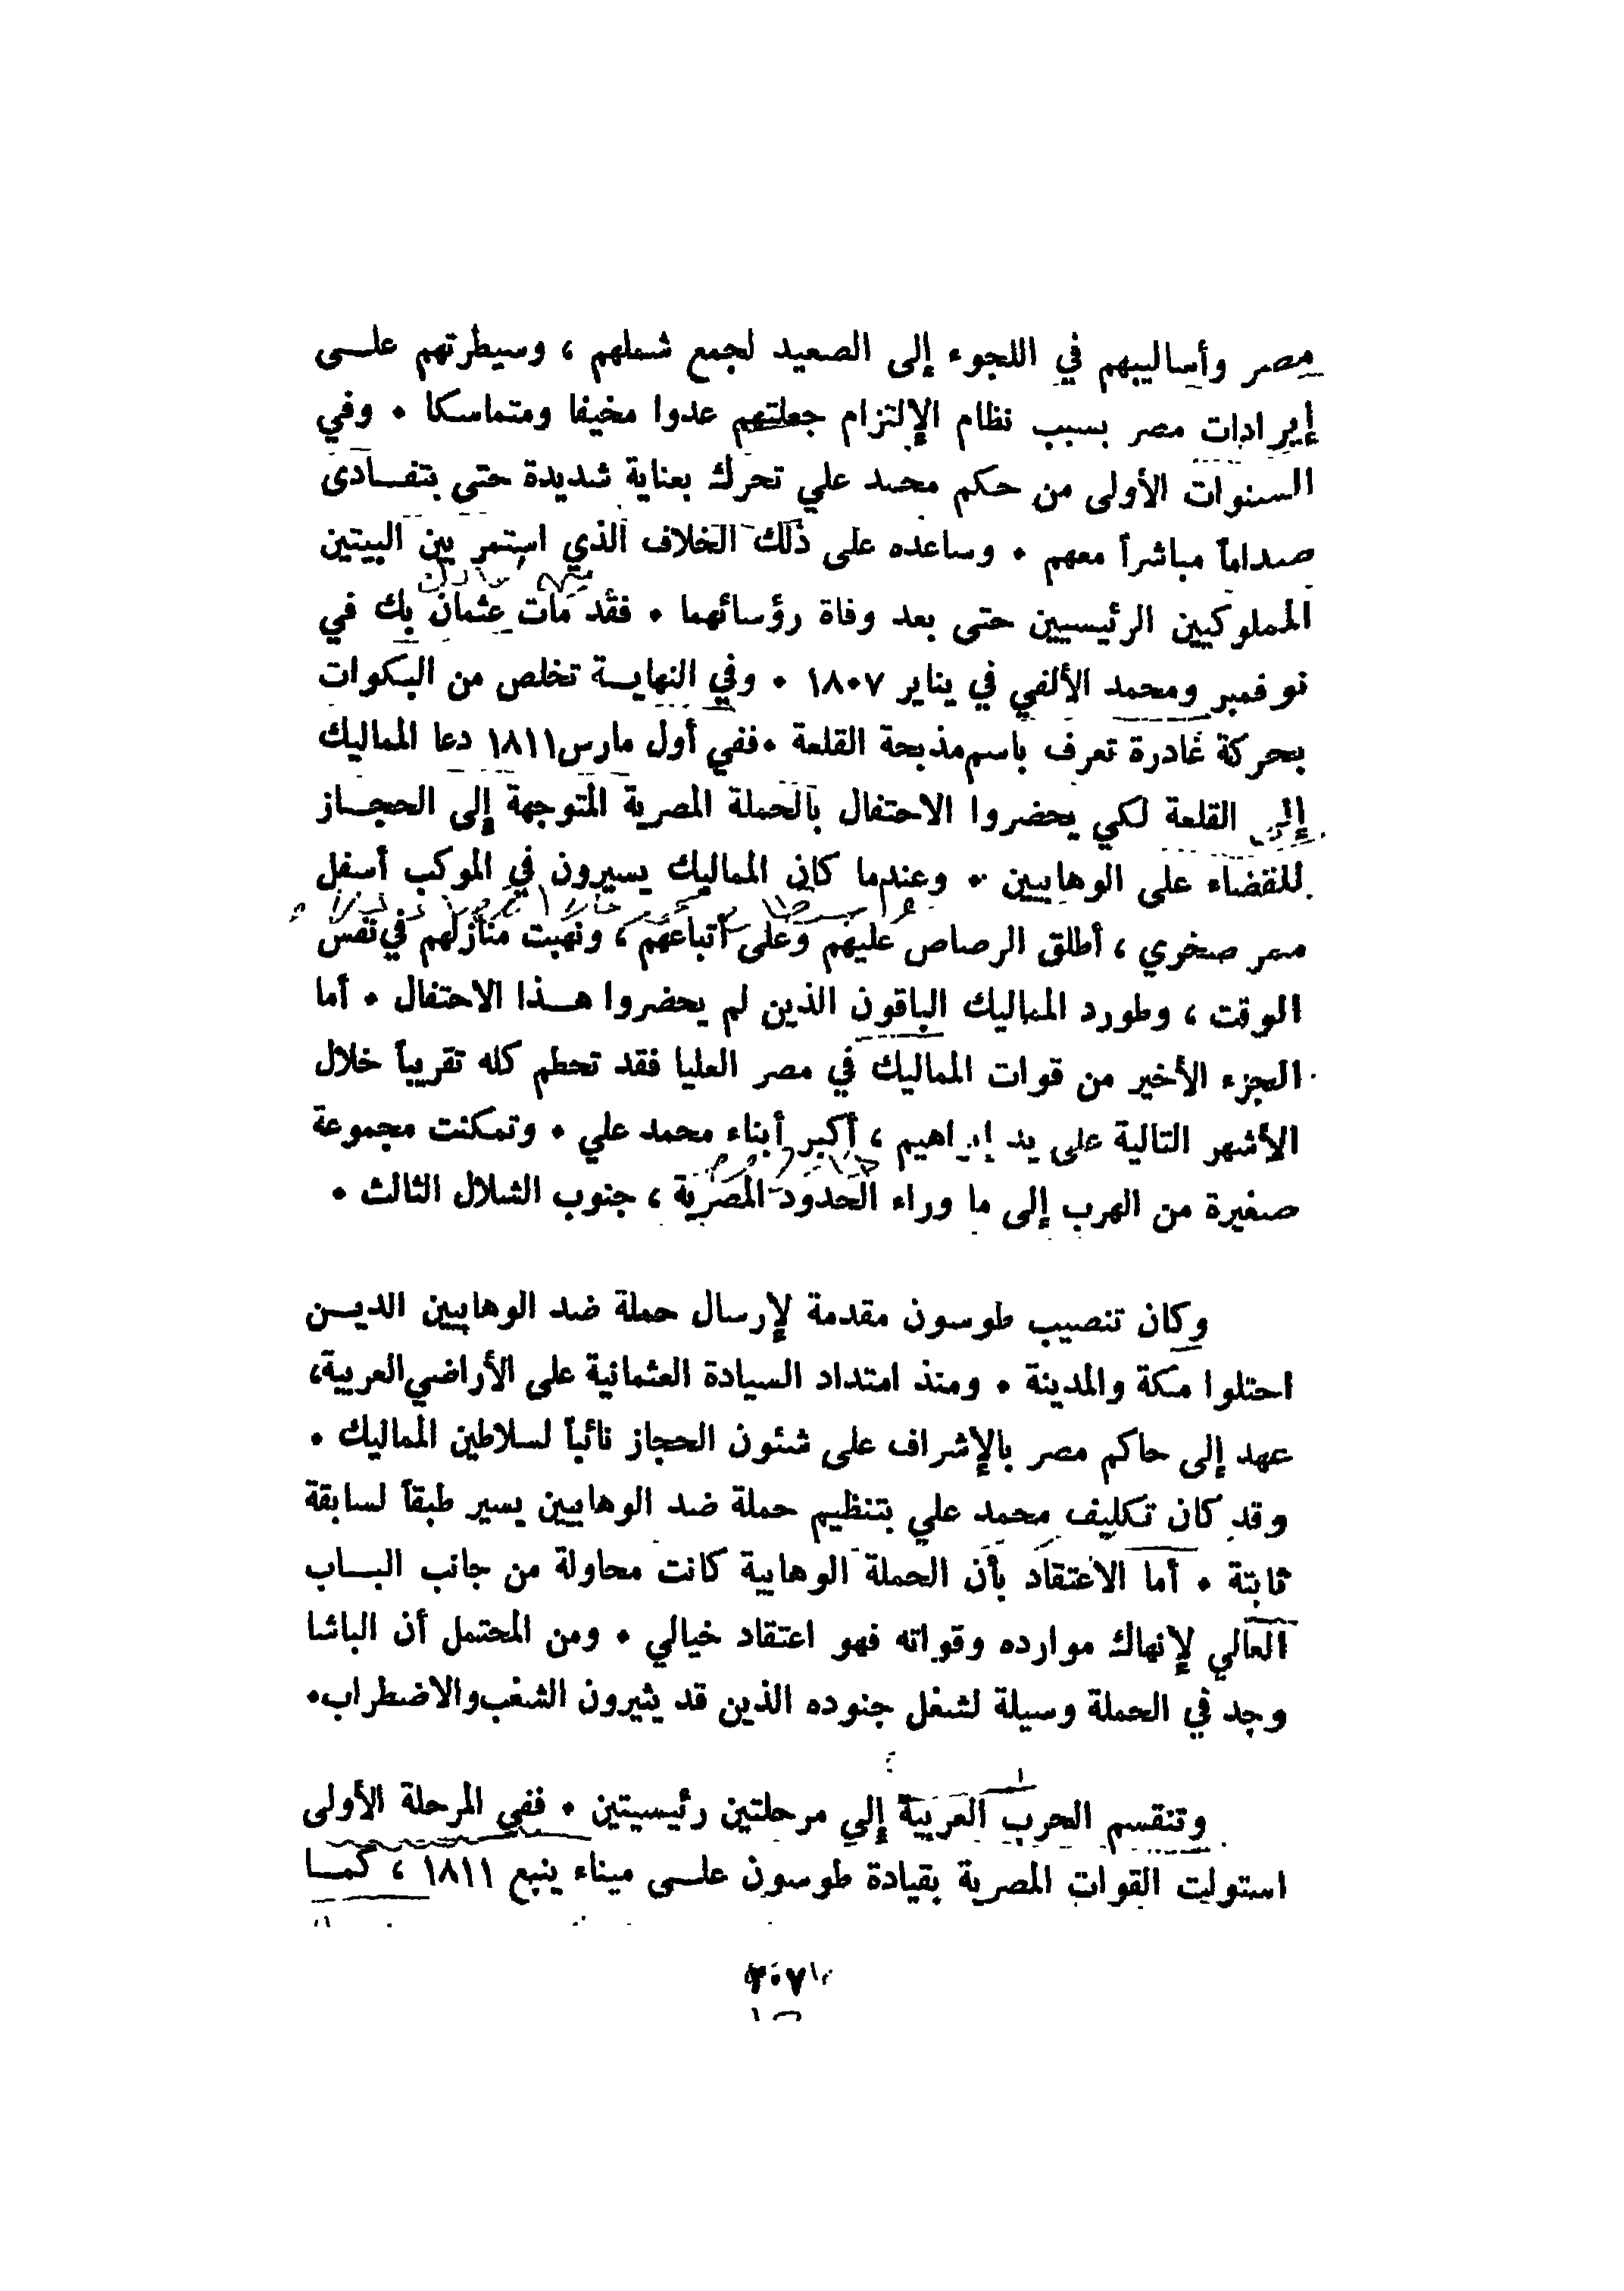 مصر وأساليبهم في اللجوء إلى الصعيد لجمع شملهم ، وسيطرتهم علـى
إيرادات مصر بسبب نظام الإلتزام جعلتهم عدوا مخيفا ومتماسكا ٠ وفي
السنوات الأولى من حكم محمد علي تحرك بعناية شديدة حتى يتفـادى
صداماً مباشراً معهم ٠ وساعده على ذلك الخلاف الذي استمر بين البيتين
المملوكيين الرئيسيين حتى بعد وفاة رؤسائهما ٠ فقد مات عثمان بك في
نوفمبر ومحمد الألفي في يناير ١٨٠٧ ٠ وفي النهايـة تخلص من البكوات
بحركة غادرة تعرف باسم مذبحة القلعة ٠ ففي أول مارس ١٨١١ دعا المماليك
إلى القلعة لكي يحضروا الاحتفال بالحملة المصرية المتوجهة إلى الحجـاز
للقضاء على الوهابيين ٠ وعندما كان المماليك يسيرون في الموكب أسفل
ممر صخري ، أطلق الرصاص عليهم وعلى أتباعهم ، ونهبت منازلهم في نفس
الوقت ، وطورد المماليك الباقون الذين لم يحضروا هـذا الاحتفال ٠ أما
الجزء الأخير من قوات المماليك في مصر العليا فقد تحطم كله تقريباً خلال
الأشهر التالية على يد إبراهيم ، أكبر أبناء محمد علي ٠ وتمكنت مجموعة
صغيرة من الهرب إلى ما وراء الحدود المصرية ، جنوب الشلال الثالث ٠
وكان تنصيب طوسون مقدمة لإرسال حملة ضد الوهابيين الديـن
احتلوا مكة والمدينة ٠ ومنذ امتداد السيادة العثمانية على الأراضي العربية،
عهد إلى حاكم مصر بالإشراف على شئون الحجاز نائباً لسلاطين المماليك ٠
وقد كان تكليف محمد علي بتنظيم حملة ضد الوهابيين يسير طبقاً لسابقة
ثابتة ٠ أما الاعتقاد بأن الحملة الوهابية كانت محاولة من جانب البـاب
العالي لإنهاك موارده وقواته فهو اعتقاد خيالي ٠ ومن المحتمل أن الباشا
وجد في الحملة وسيلة لشغل جنوده الذين قد يثيرون الشغب والاضطراب٠
وتنقسم الحرب العربية إلي مرحلتين رئيسيتين ٠ ففي المرحلة الأولى
استولت القوات المصرية بقيادة طوسون علـى ميناء ينبع ١٨١١ ، كمـا
٢٠٧